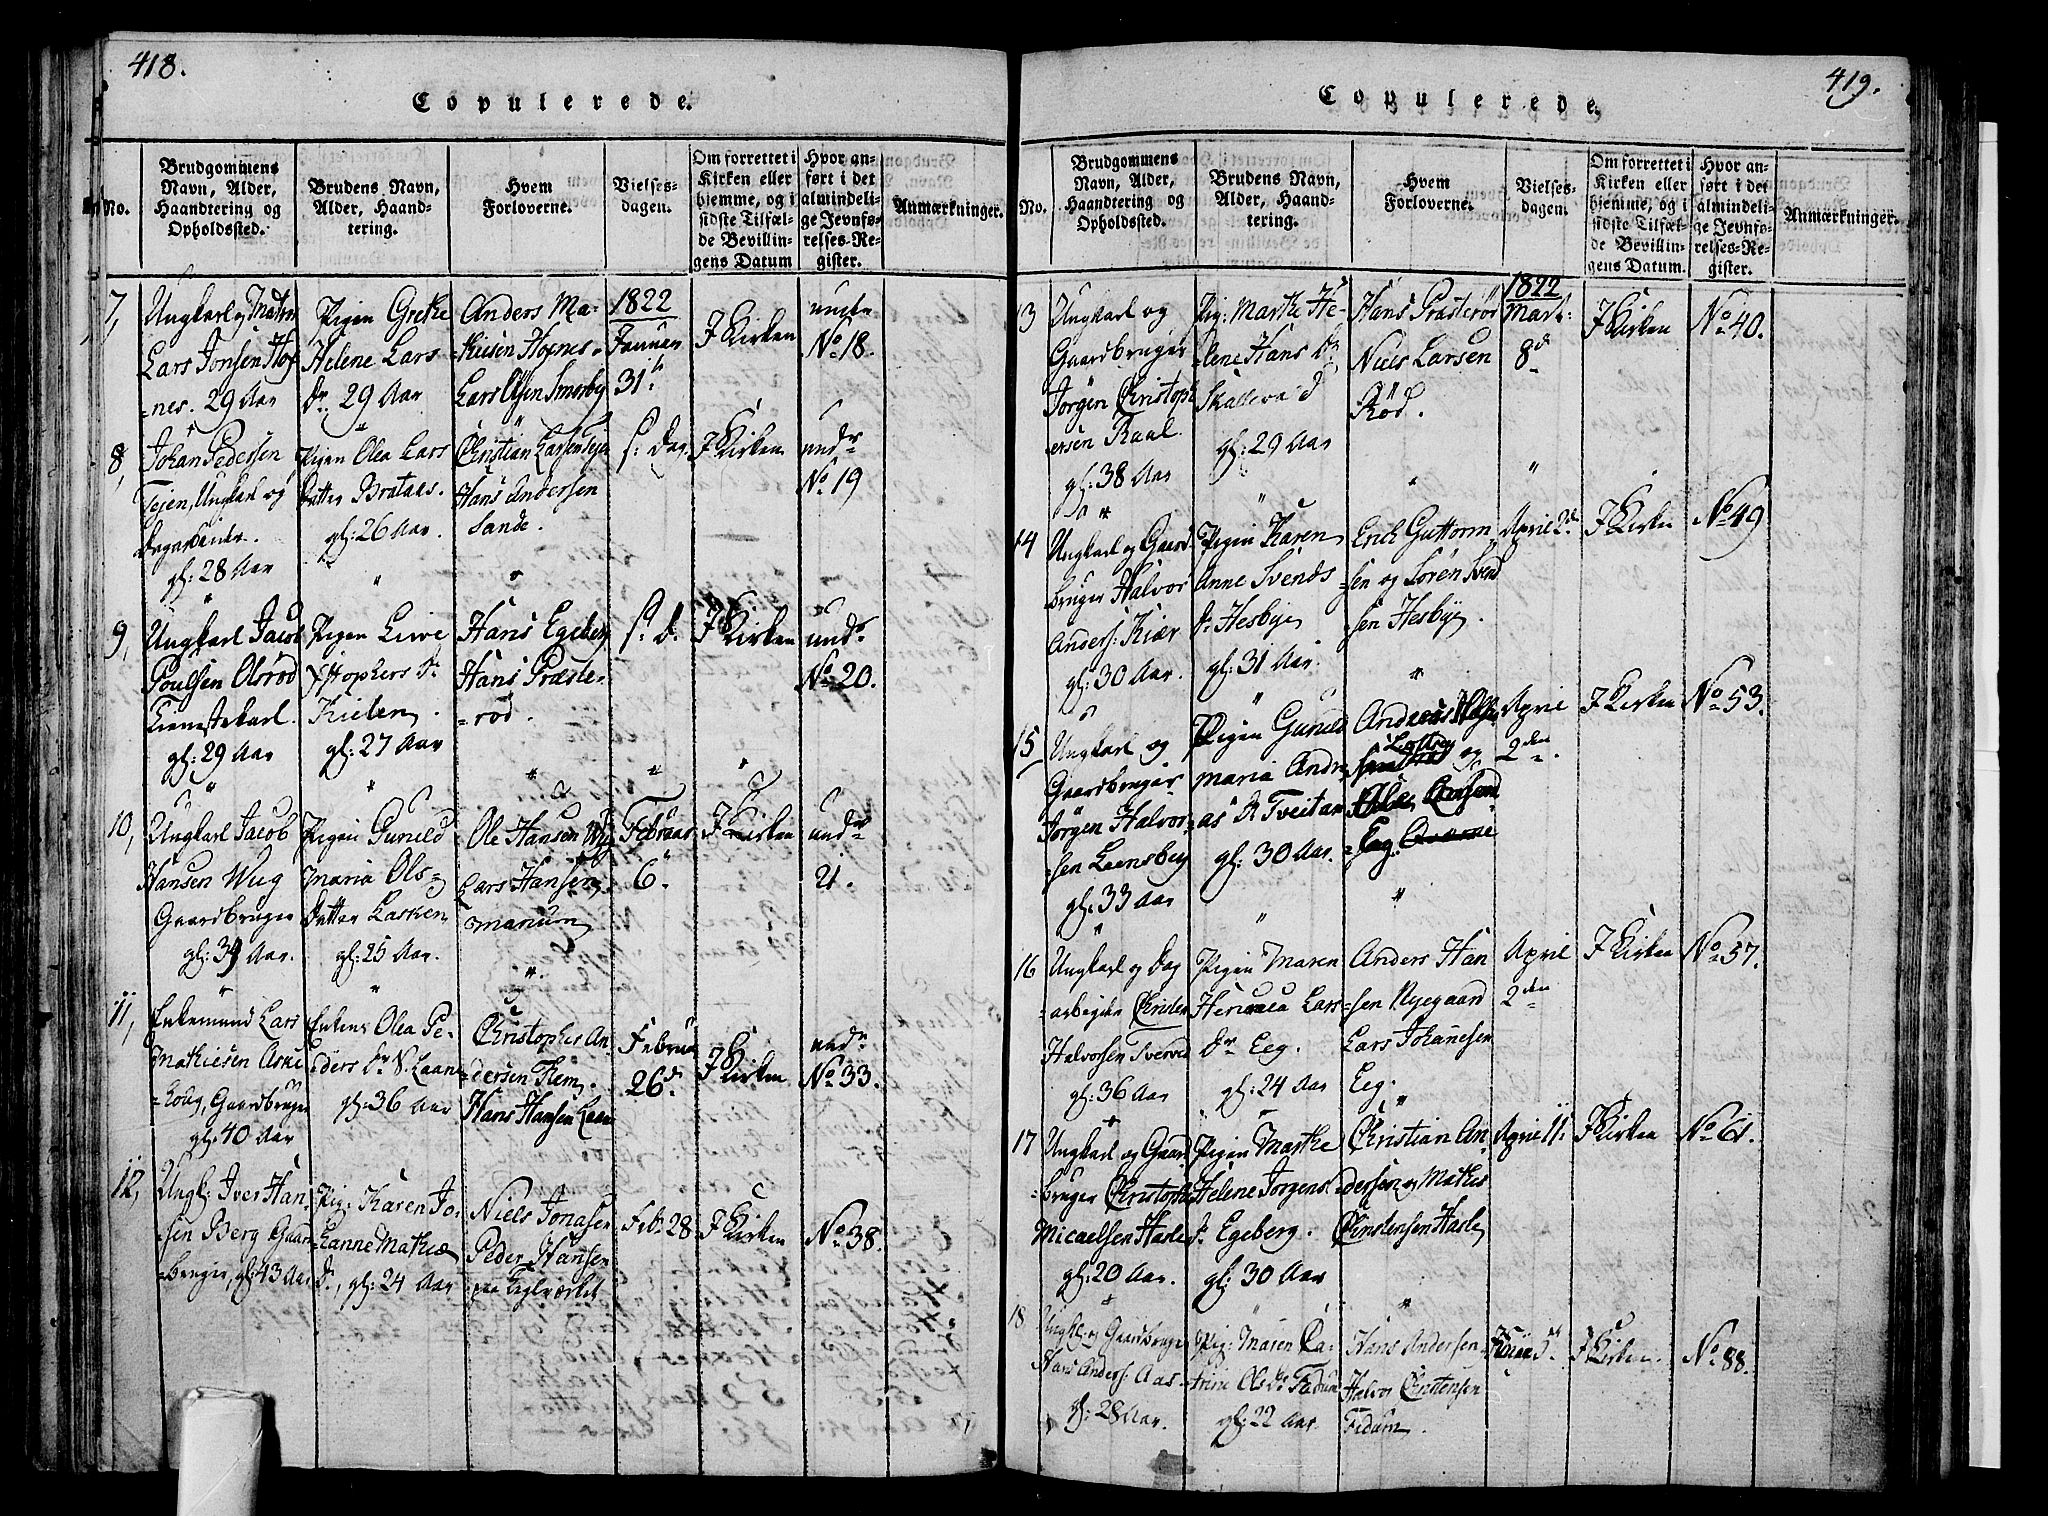 418.
Copulerede.
No.
Brudgommens
Navn, Alder,
Haandtering og
Opholdssted.
Brudens Navn,
Alder, Haand-
tering.
Hvem
Forloverne.
Vielses-
dagen.
Om forrettet i
Kirken eller
hjemme, og i
sidste Tilfæl-
de Bevillin-
gens Datum
Hvor an-
ført i det
almindeli-
ge Jevnfø-
relses-Re-
gister.
Anmærkninger.
7,
Ungkarl og
Lars Jonsen Hof
=nes. 29 Aar
Pigen Grethe
Helene Lars
Dr. 29 Aar
Anders Ma-
=thisen Hofnes.
Lars Olsen Smørby
1822
Januar
31
I Kirken
undr
No 18.
8,
Johan Pedersen
Tejen, Ungkarl og
Dagarbeider.
gl: 28 Aar
Pigen Olea Lars
Datter Brataas.
gl: 26 Aar.
Christian Larsen Tejen
Hans Andersen
Sande.
s: Dag
I Kirken
undr
No 19
9,
Ungkarl Jacob
Poulsen Olsrød
Tienestekarl.
gl: 29 Aar
Pigen Live
Kielen.
gl: 27 Aar
Hans Egeberg
Hans Præste-
=rød.
s: d.
I Kirken
undr
No 20.
10,
Ungkarl Jacob
Hansen Wug
Gaardbruger
gl: 39 Aar.
Pigen Gunild
Maria Ols-
Datter Lasken
gl: 25 Aar.
Ole Hansen Wug
Lars Hansen
Manum
Februar
6.
I Kirken
undr
21.
11,
Enkemand Lars
Mathisen Aske
=houg, Gaardbruger
gl: 40 Aar
Enken Olea Pe-
ders Dr N. Laane
gl: 36 Aar
Christopher An-
=dersen Flem.
Hans Hansen Laan
Februar
26d.
I Kirken
undr
No 33.
12,
Ungk: Iver Han-
=sen Berg Gaar
=bruger, gl: 43 Aar
Pig: Karen Jo-
=hanne Mathis
D., gl: 24 Aar
Niels Jonasen
Peder Hansen
paa Teglværket
Feb: 28
I Kirken
No 38.
419.
Copulerede.
No.
Brudgommens
Navn, Alder,
Haandtering og
Opholdssted.
Brudens Navn,
Alder, Haand-
tering.
Hvem
Forloverne.
Vielses-
dagen.
Om forrettet i
Kirken eller
hjemme, og i
sidste Tilfæl-
de Bevillin-
gens Datum.
Hvor an-
ført i det
almindeli-
ge Jevnfø-
relses-Re-
gister.
Anmærkninger.
13
Ungkarl og
Gaardbruger
Jørgen Christoph
ersen Raal.
gl: 38 Aar
Pig: Marthe He-
=lene Hans Dr
Skallevold
gl: 29 Aar
Hans Præsterød
Niels Larsen
Rød.
1822
Marts:
8d
I Kirken
No 40.
14
Ungkarl og Gaard
bruger Halvor
Anders: Kiær
gl: 30 Aar.
Pigen Karen
Anne Svends
Dr Hesbye
gl: 31 Aar.
Erich Guttorm
=sen og Søren Svend
sen Hesbye.
April 2d
I Kirken
No 49
15
Ungkarl og
Gaardbruger
Jørgen Halvor
=sen Leensberg
gl: 33 Aar
Pigen Gunild
Maria Andre
as Dr Tveitan
gl: 30 Aar.
Andreas
og
Eeg.
April
2den.
I Kirken
No 53.
16
Ungkarl og Dag
=arbeider Christen
Halvorsen
gl: 36 Aar
Pigen Maren
Lars
Dr Eeg.
gl: 24 Aar
Anders Han
=sen Nyegaard
Lars Johannesen
Eeg.
April
2den
I Kirken
No 57.
17
Ungkarl og Gaar
=bruger Christopher
Micaelsen Hasle
gl: 20 Aar.
Pigen Marthe
Helene Jorgens
Dr Egeberg.
gl: 30 Aar
Christian An
dersen og Mathis
Christensen Hasle
April 11.
I Kirken
No 61.
18
Ungkl: og Gaardbruger
Hans Anders: Aas
gl: 28 Aar.
Pig: Maren Ca-
trine Ols Dr Fadum
gl: 22 Aar.
Hans Andersen
Halvor Christensen
Fadum.
I Kirken.
No 88.